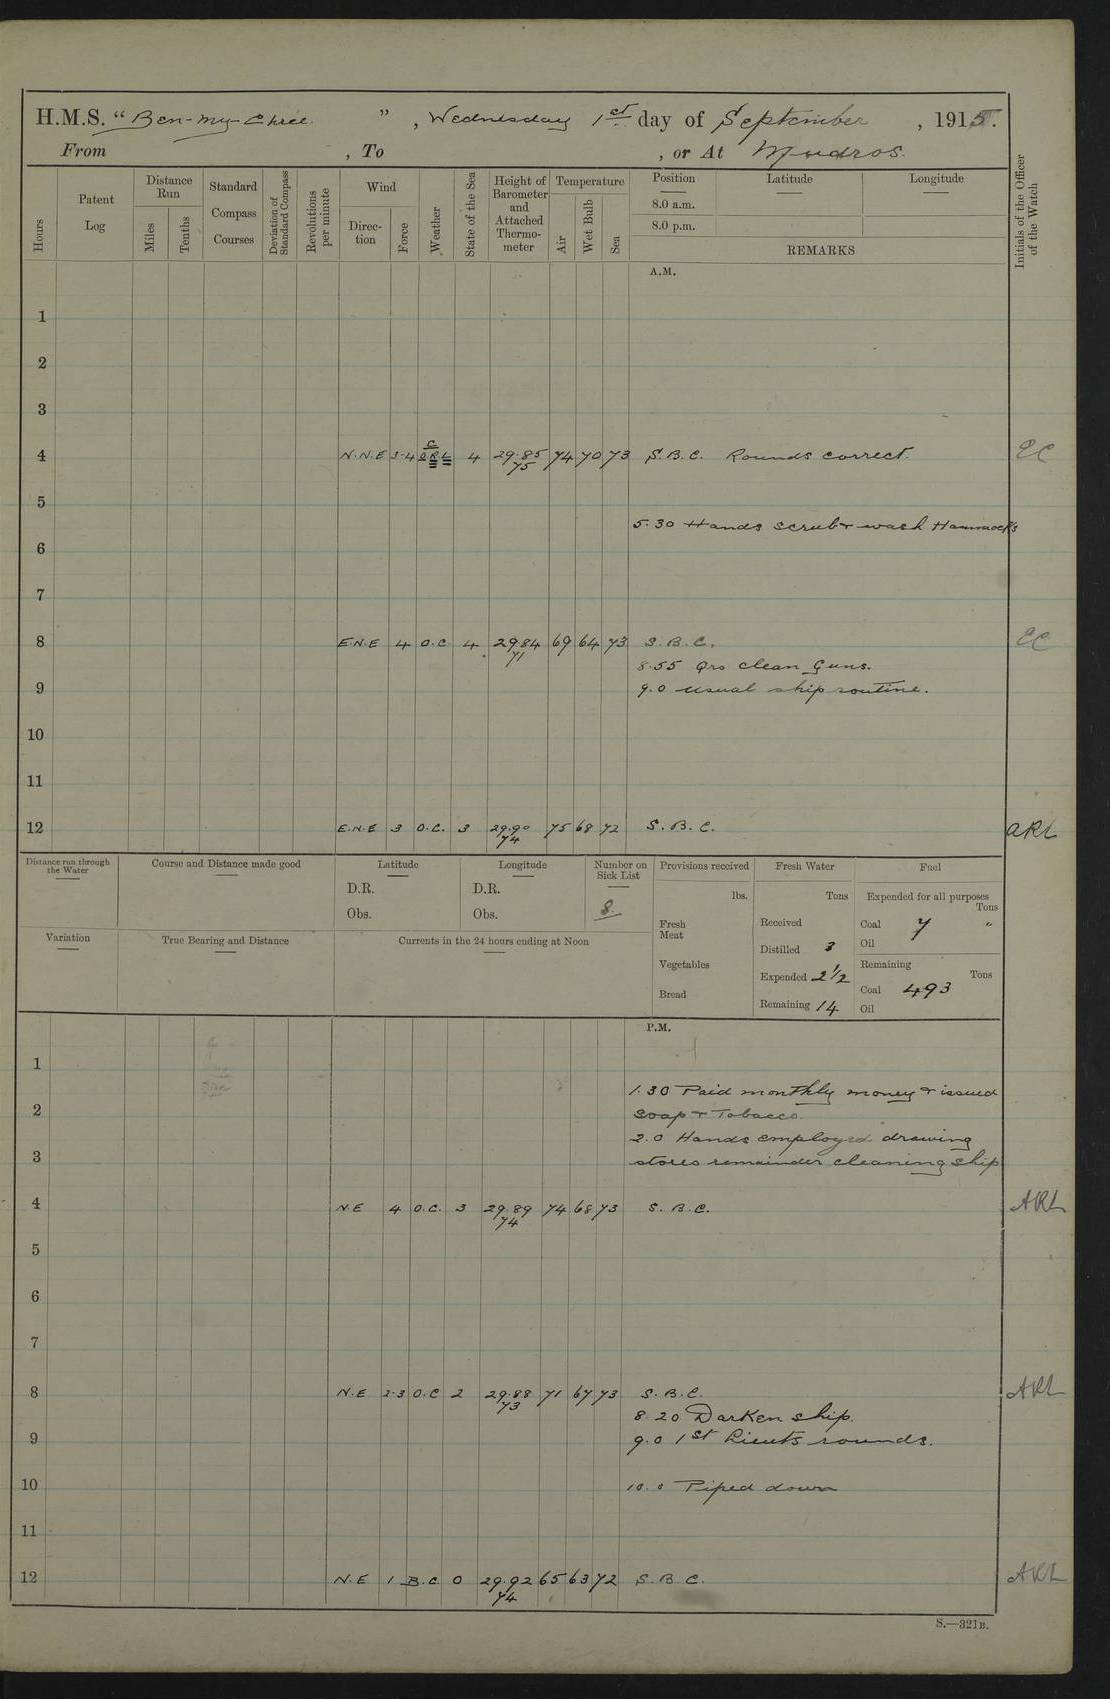 H.M.S. "Ben-my-Chree", Wednesday 1st day of September, 1915.
From , To , or At Mudros.
Hours Patent Log Distance Run Miles Tenths Standard Compass Courses Deviation of Standard Compass Revolutions per minute Wind Direc-tion Force Weather State of the Sea Height of Barometer and Attached Thermo-meter Temperature Air Wet Bulb Sea Position Latitude Longitude Initials of the Officer of the Watch
8.0 a.m.
8.0 p.m.
REMARKS
A.M.
1
2
3
4 N.N.E 3-4 C O.R.L 4 29.85 75 74 70 73 S.B.C. Rounds correct. EC
5
5.30 Hands scrub & wash Hammocks
6
7
8 E.N.E 4 O.C 4 29.84 71 69 64 73 S.B.C. EC
8.55 Qrs clean Guns.
9 9.0 usual ship routine.
10
11
12 E.N.E 3 O.C. 3 29.90 74 75 68 72 S.B.C. ARL
Distance run through the Water Course and Distance made good Latitude Longitude Number on Sick List Provisions received Fresh Water Fuel
D.R. D.R. lbs. Tons Expended for all purposes Tons
Obs. Obs. 8. Fresh Meat Received Coal 7 "
Variation True Bearing and Distance Currents in the 24 hours ending at Noon Distilled 3 Oil
Vegetables Expended 2 1/2 Remaining Tons
Bread Remaining 14 Coal 493
Oil
P.M.
1
1.30 Paid monthly money & issued
2 Soap & Tobacco.
2.0 Hands employed drawing
3 stores remainder cleaning ship
4 N.E 4 O.C. 3 29.89 74 74 68 73 S.B.C. ARL
5
6
7
8 N.E 2-3 O.C 2 29.88 73 71 67 73 S.B.C. ARL
8.20 Darken ship.
9 9.0 1st Lieuts rounds.
10 10.0 Piped down
11
12 N.E 1 B.C. 0 29.92 74 65 63 72 S.B.C. ARL
S.—321B.